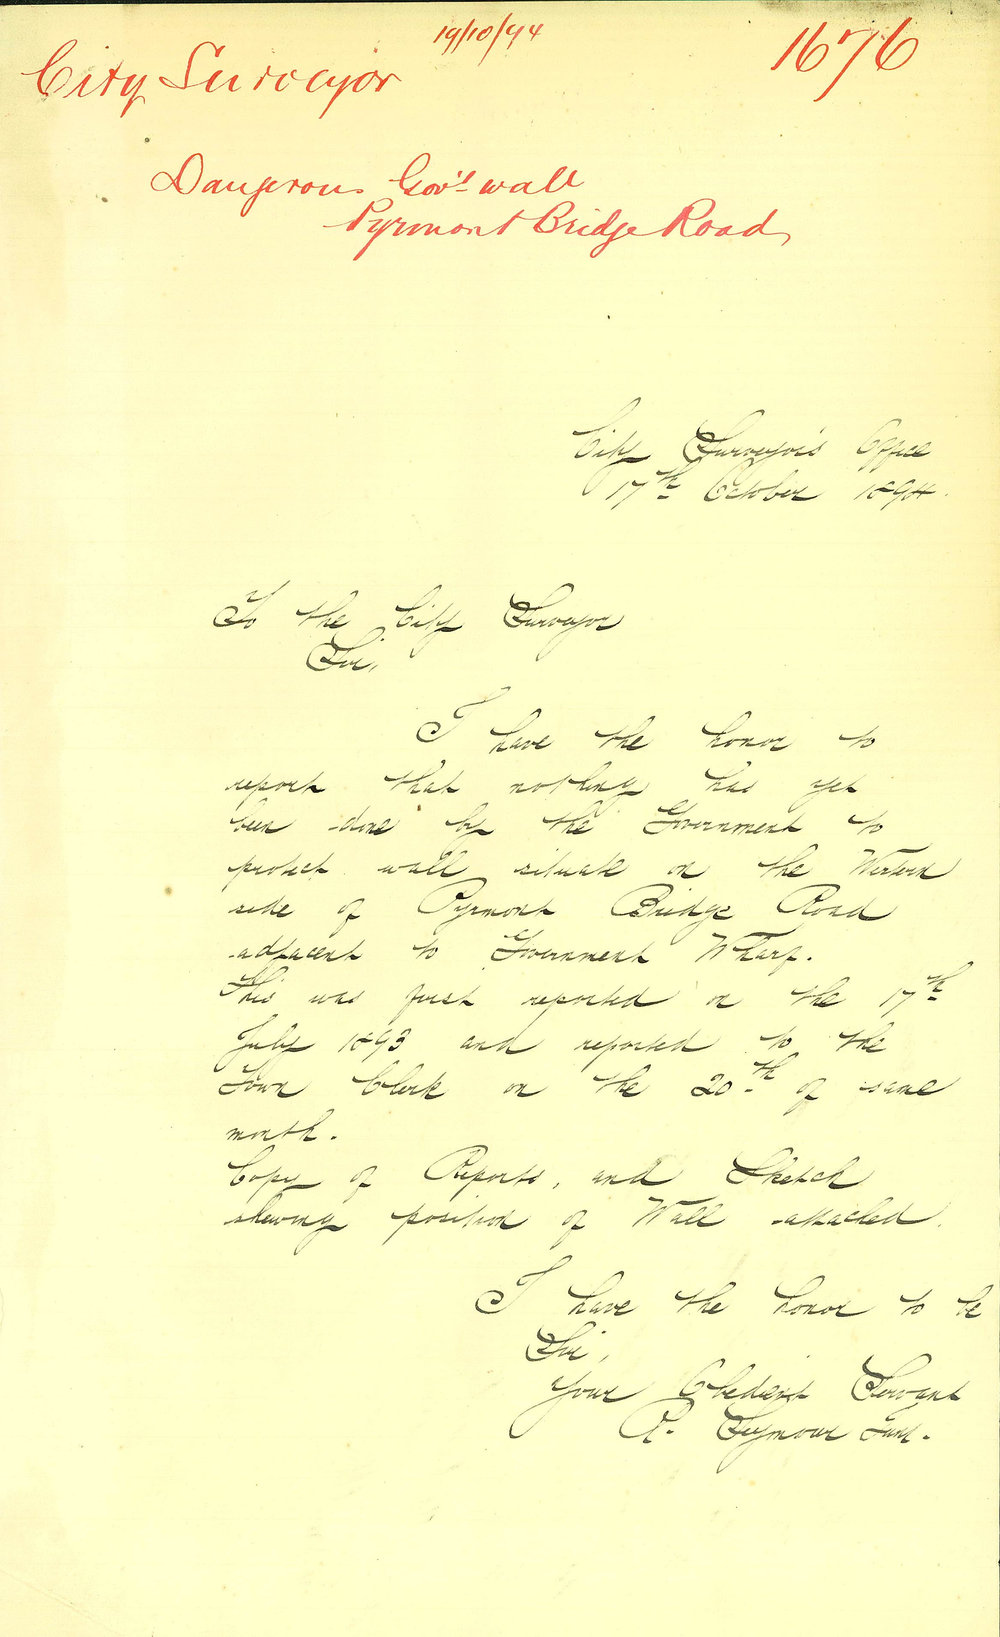 19/10/94
1676
City Surveyor
Dangerous Gov't wall
Pyrmont Bridge Road
City Surveyor's Office
17th October 1894.
To the City Surveyor
Sir,
I have the honor to
report that nothing has yet
been done by the Government to
protect wall situate on the Western
side of Pyrmont Bridge Road
adjacent to Government Wharf.
This was first reported on the 17th
July 1893 and reported to the
Town Clerk on the 20th of same
month.
Copy of Reports, and Sketch
shewing position of Wall attached.
I have the honor to be
Sir,
Your Obedient Servant
R. Seymour Junr.